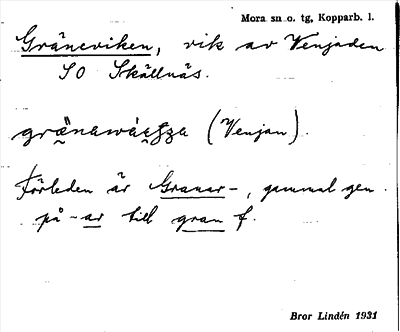 Mora sn o. tg, Kopparb. l.
Gräneviken, vik av Venjaden
SO Skällnäs.
(Venjan).
Förleden är Granar-, gammal gen.
på -ar till gran f.
Bror Lindén 1931